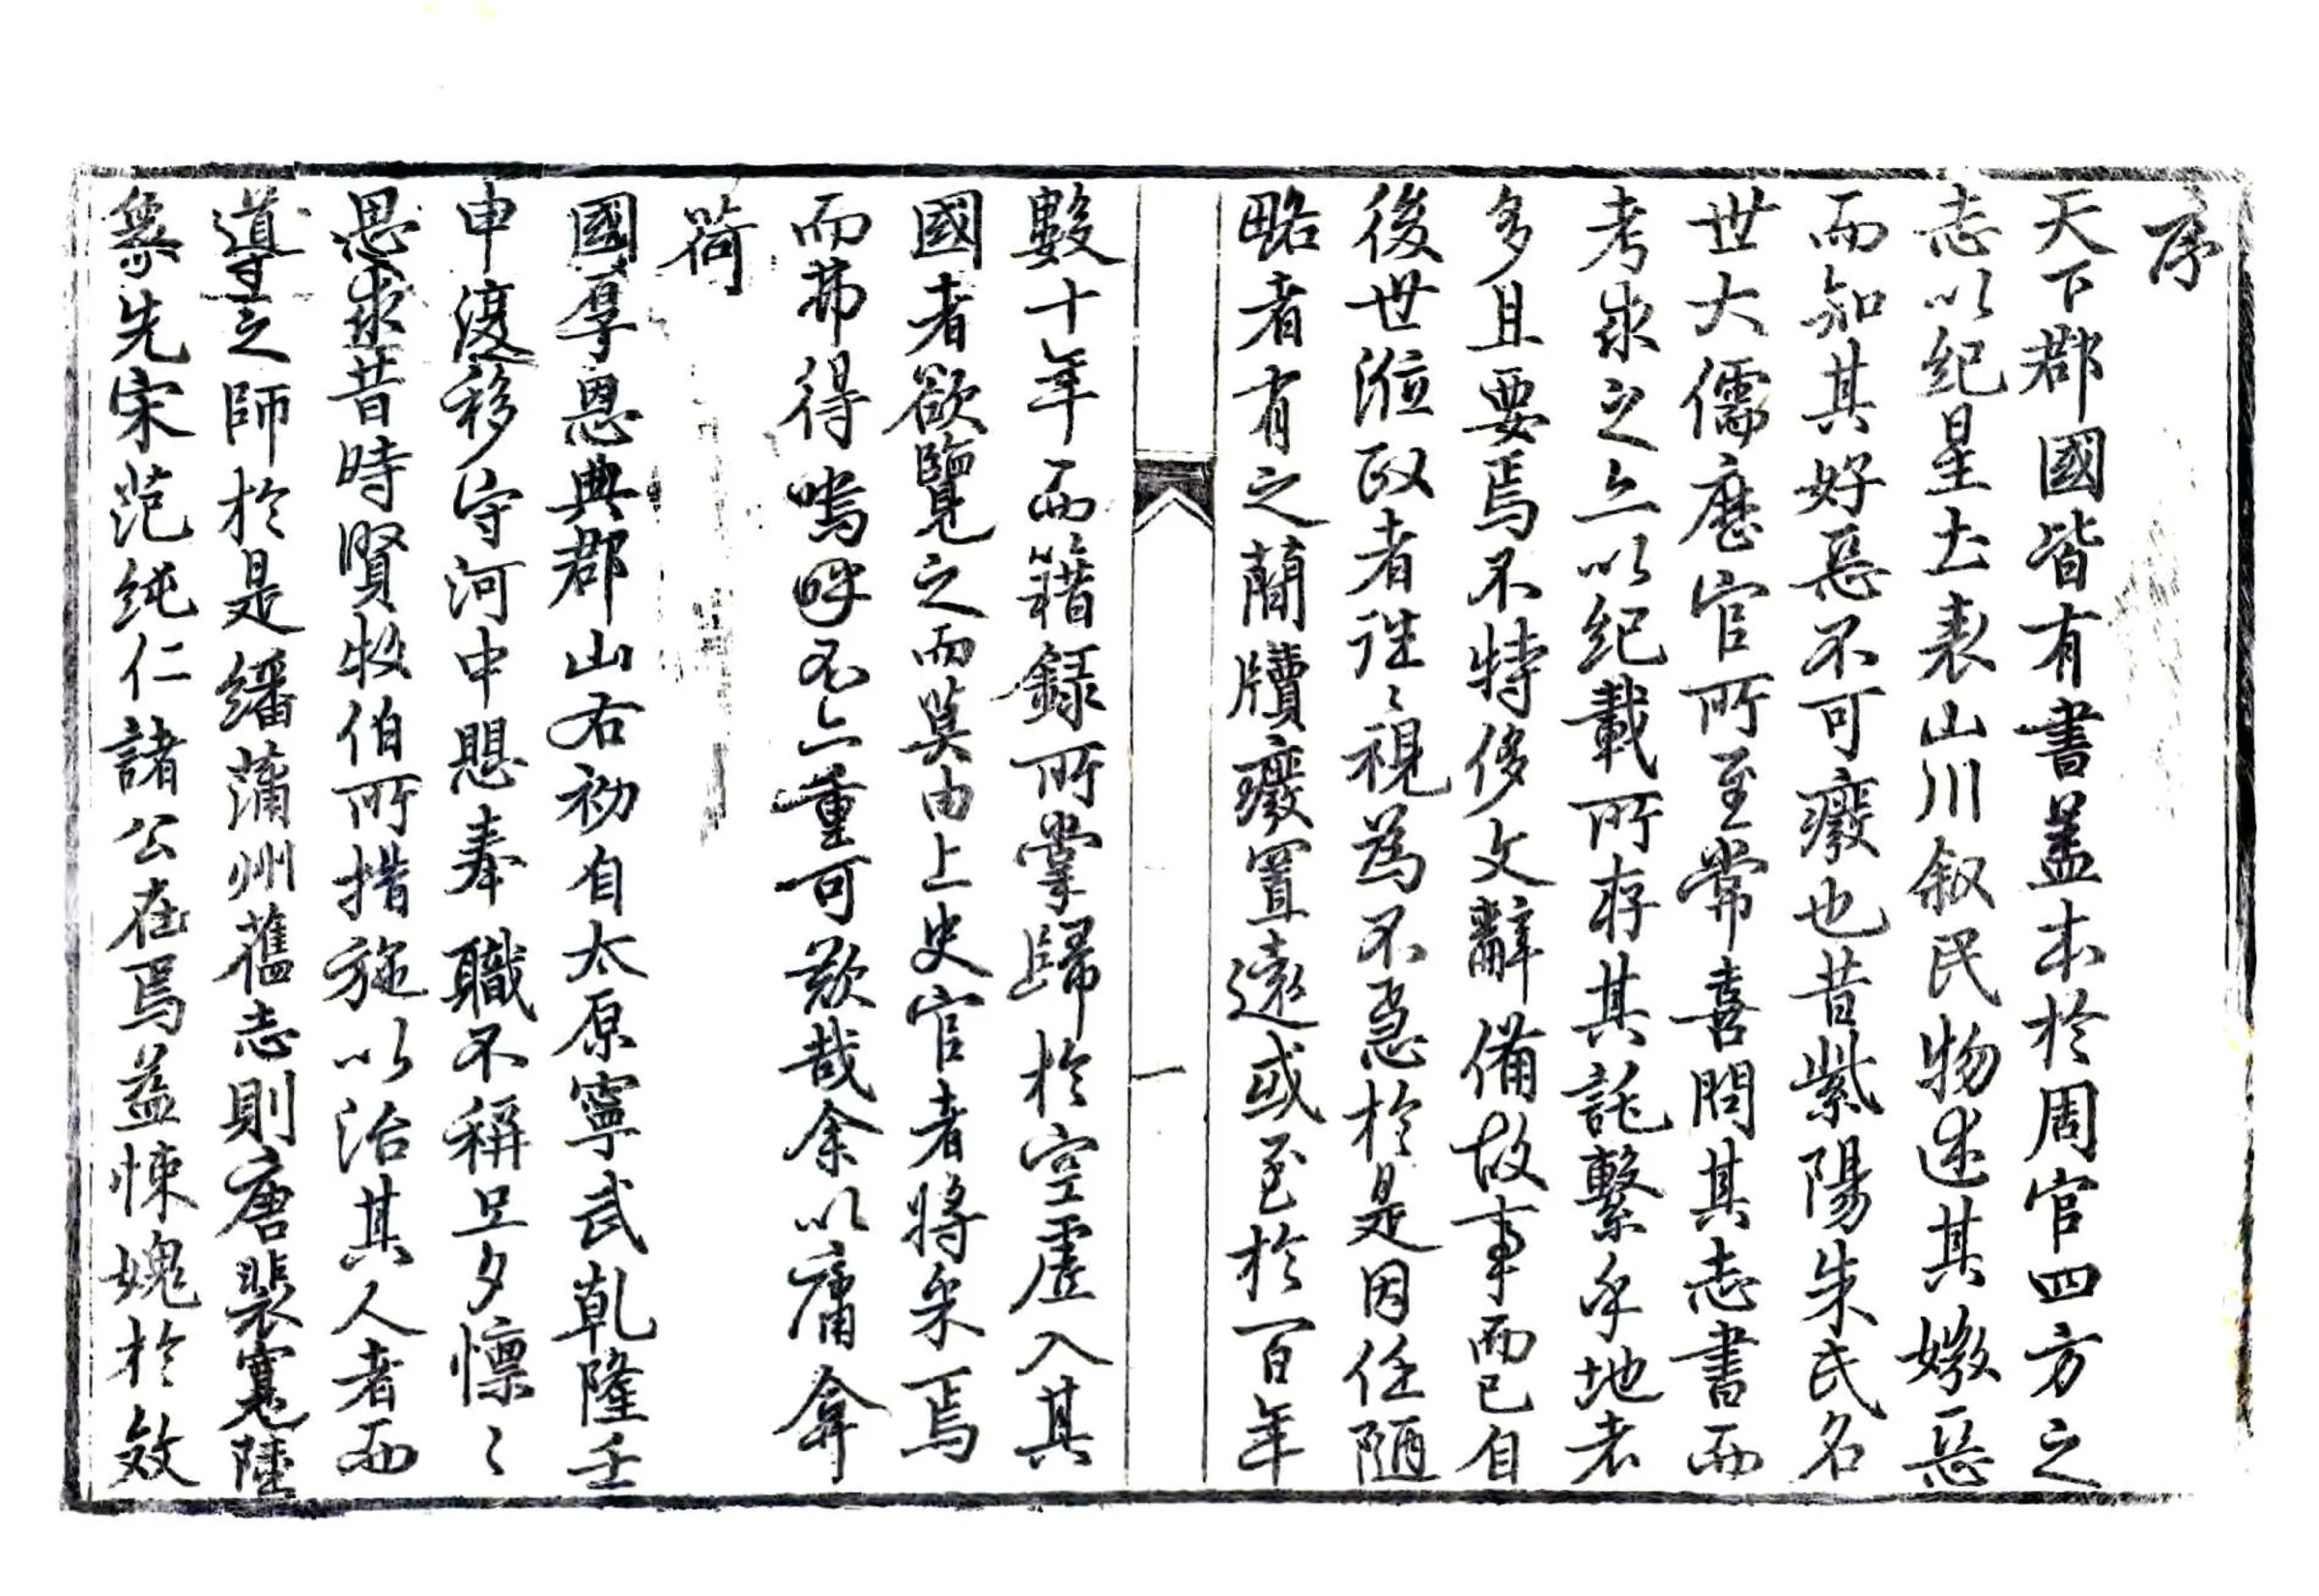 序
天下郡國皆有書蓋本於周官四方之
志以紀星土表山川叙民物述其媺惡
而知其好惡不可廢也昔紫陽朱氏名
世大儒歷官所至常喜問其志書而
考求之亦以紀載所存其託繫乎地者
多且要焉不特侈文辭備故事而已自
後世涖政者往〻視為不急於是因任陋
略者有之蕳牘廢置遠或至於一百年
數十年而籍録所掌歸於空虛入其
國者欲覽之而莫由上史官者將采焉
而弗得嗚呼不亦重可歎哉余以庸弇
荷
國厚恩典郡山右初自太原寧武乾隆壬
申復移守河中思奉職不稱旦夕懔〻
思求昔時賢牧伯所措施以治其人者而
導之師於是繙蒲州舊志則唐裴寬陸
象先宋范純仁諸公在焉益悚媿於效
一